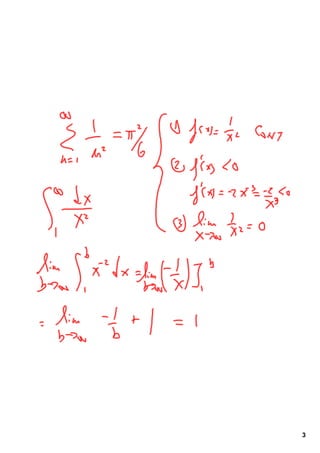 ∞
∑ 1/n² = π²/6 { (1) f(x) = 1/x² CONT
n=1
(2) f'(x) < 0
f'(x) = -2x⁻³ = -2/x³ < 0
(3) lim x→∞ 1/x² = 0
∫₁^∞ dx/x²
lim b→∞ ∫₁^b x⁻² dx = lim b→∞ (-1/x)]₁^b
= lim b→∞ -1/b + 1 = 1
3